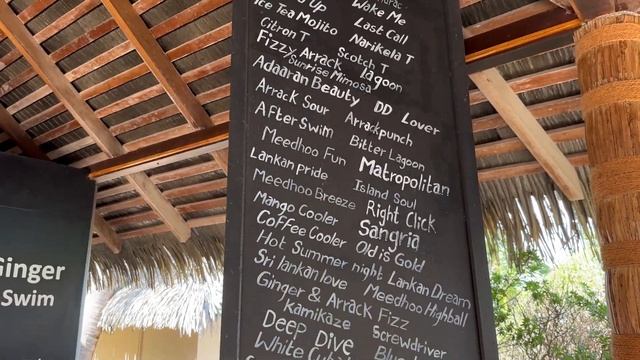 Up
Wake Me
Ice Tea Molito
Last Call
Citron T
Narikela T
Fizzy Arrack
Scotch T
Sunrise Mimosa
Lagoon
Adaaran Beauty
DD Lover
Arrack Sour
Arrackpunch
After Swim
Bitter Lagoon
Meedhoo Fun
Matropolitan
Lankan pride
Island Soul
Meedhoo Breeze
Right Click
Mango Cooler
Sangria
Coffee Cooler
Old is Gold
Hot Summer night
Lankan Dream
Sri lankan love
Meedhoo Highball
Ginger & Arrack Fizz
Kamikaze
Screwdriver
Deep Dive
White
Ginger
Swim